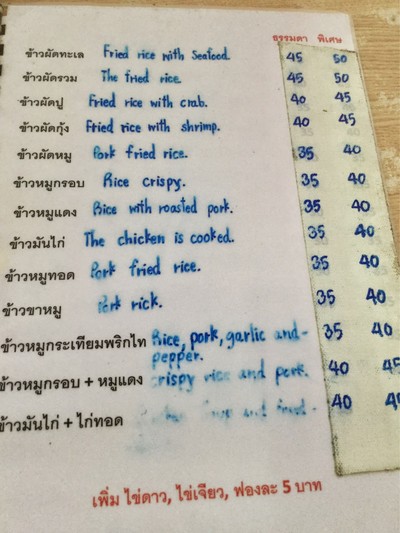 ธรรมดา พิเศษ
ข้าวผัดทะเล Fried rice with Seafood. 45 50
ข้าวผัดรวม The fried rice. 45 50
ข้าวผัดปู Fried rice with crab. 40 45
ข้าวผัดกุ้ง Fried rice with shrimp. 40 45
ข้าวผัดหมู Pork fried rice. 35 40
ข้าวหมูกรอบ Rice crispy. 35 40
ข้าวหมูแดง Rice with roasted pork. 35 40
ข้าวมันไก่ The chicken is cooked. 35 40
ข้าวหมูทอด Pork fried rice. 35 40
ข้าวขาหมู Pork rick. 35 40
ข้าวหมูกระเทียมพริกไท Rice, pork, garlic and- 35 40
pepper.
ข้าวหมูกรอบ + หมูแดง crispy rice and pork. 40 45
ข้าวมันไก่ + ไก่ทอด and fried- 40
เพิ่ม ไข่ดาว, ไข่เจียว, ฟองละ 5 บาท